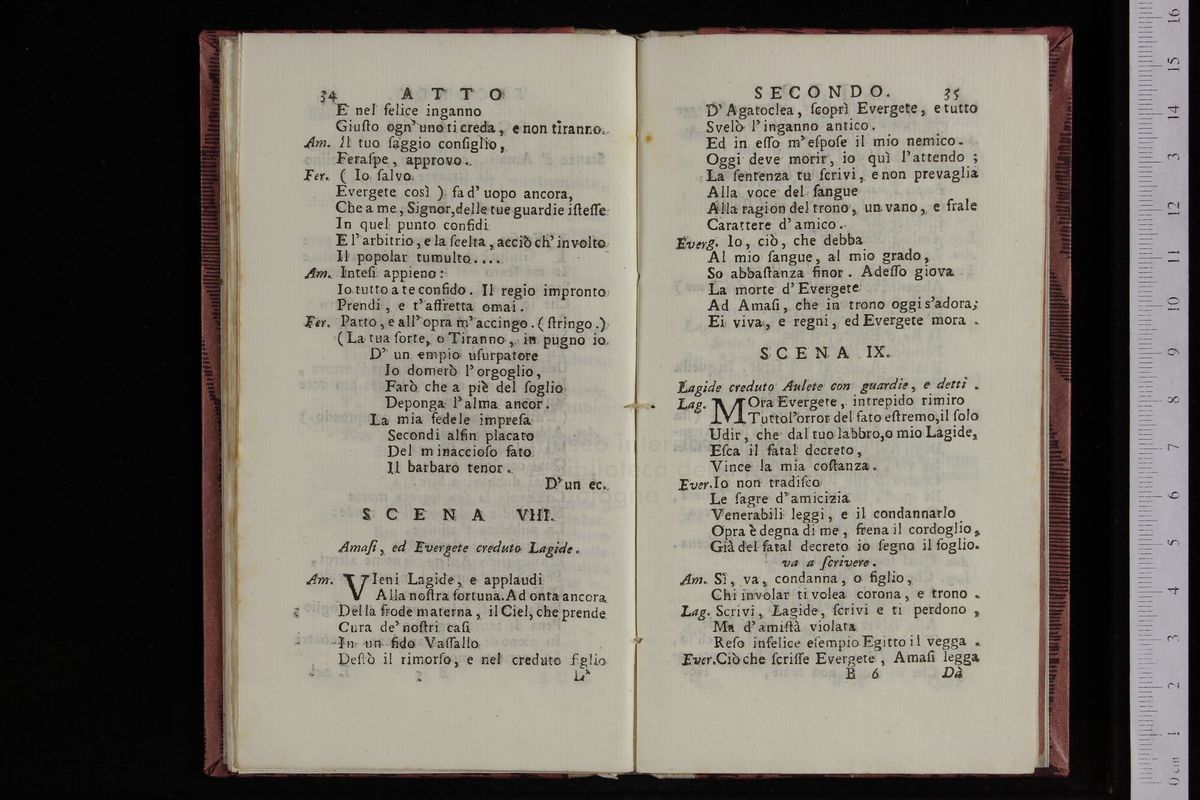 34 A T T O
E nel felice inganno
Giuſto ogn' uno ti creda, e non tiranno.
Am. Il tuo ſaggio conſiglio,
Feraſpe, approvo.
Fer. ( Io ſalvo
Evergete così ) fa d' uopo ancora,
Che a me, Signor, delle tue guardie iſteſſe
In quel punto confidi
E l' arbitrio, e la ſcelta, acciò ch' involto
Il popolar tumulto....
Am. Inteſi appieno:
Io tutto a te confido. Il regio impronto
Prendi, e t' affretta omai.
Fer. Parto, e all' opra m' accingo. ( ſtringo.)
( La tua ſorte, o Tiranno, in pugno io
D' un empio uſurpatore
Io domerò l' orgoglio,
Farò che a piè del ſoglio
Deponga l' alma ancor.
La mia fedele impreſa
Secondi alfin placato
Del minaccioſo fato
Il barbaro tenor.
D' un ec.
S C E N A VIII.
Amaſi, ed Evergete creduto Lagide.
Am. VIeni Lagide, e applaudi
Alla noſtra fortuna. Ad onta ancora
Della frode materna, il Ciel, che prende
Cura de' noſtri caſi
In un fido Vaſſallo
Deſtò il rimorſo, e nel creduto figlio
D'
SECONDO. 35
D' Agatoclea, ſcoprì Evergete, e tutto
Svelò l' inganno antico.
Ed in eſſo m' eſpoſe il mio nemico.
Oggi deve morir, io quì l' attendo;
La ſentenza tu ſcrivi, e non prevaglia
Alla voce del ſangue
Alla ragion del trono, un vano, e frale
Carattere d' amico.
Everg. Io, ciò, che debba
Al mio ſangue, al mio grado,
So abbaſtanza finor. Adeſſo giova
La morte d' Evergete
Ad Amaſi, che in trono oggi s'adora;
Ei viva, e regni, ed Evergete mora.
S C E N A IX.
Lagide creduto Aulete con guardie, e detti.
Lag. MOra Evergete, intrepido rimiro
Tutto l'orror del fato eſtremo, il ſolo
Udir, che dal tuo labbro, o mio Lagide,
Eſca il fatal decreto,
Vince la mia coſtanza.
Ever. Io non tradiſco
Le ſagre d' amicizia
Venerabili leggi, e il condannarlo
Opra è degna di me, frena il cordoglio,
Già del fatal decreto io ſegno il foglio.
va a ſcrivere.
Am. Sì, va, condanna, o figlio,
Chi involar ti volea corona, e trono.
Lag. Scrivi, Lagide, ſcrivi e ti perdono,
Ma d' amiſtà violata
Reſo infelice eſempio Egitto il vegga.
Ever. Ciò che ſcriſſe Evergete, Amaſi legga
B 6 Dà